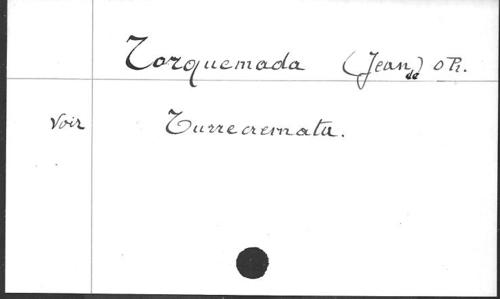 Torquemada (Jean de) OPr.
Voir Turrecremata.